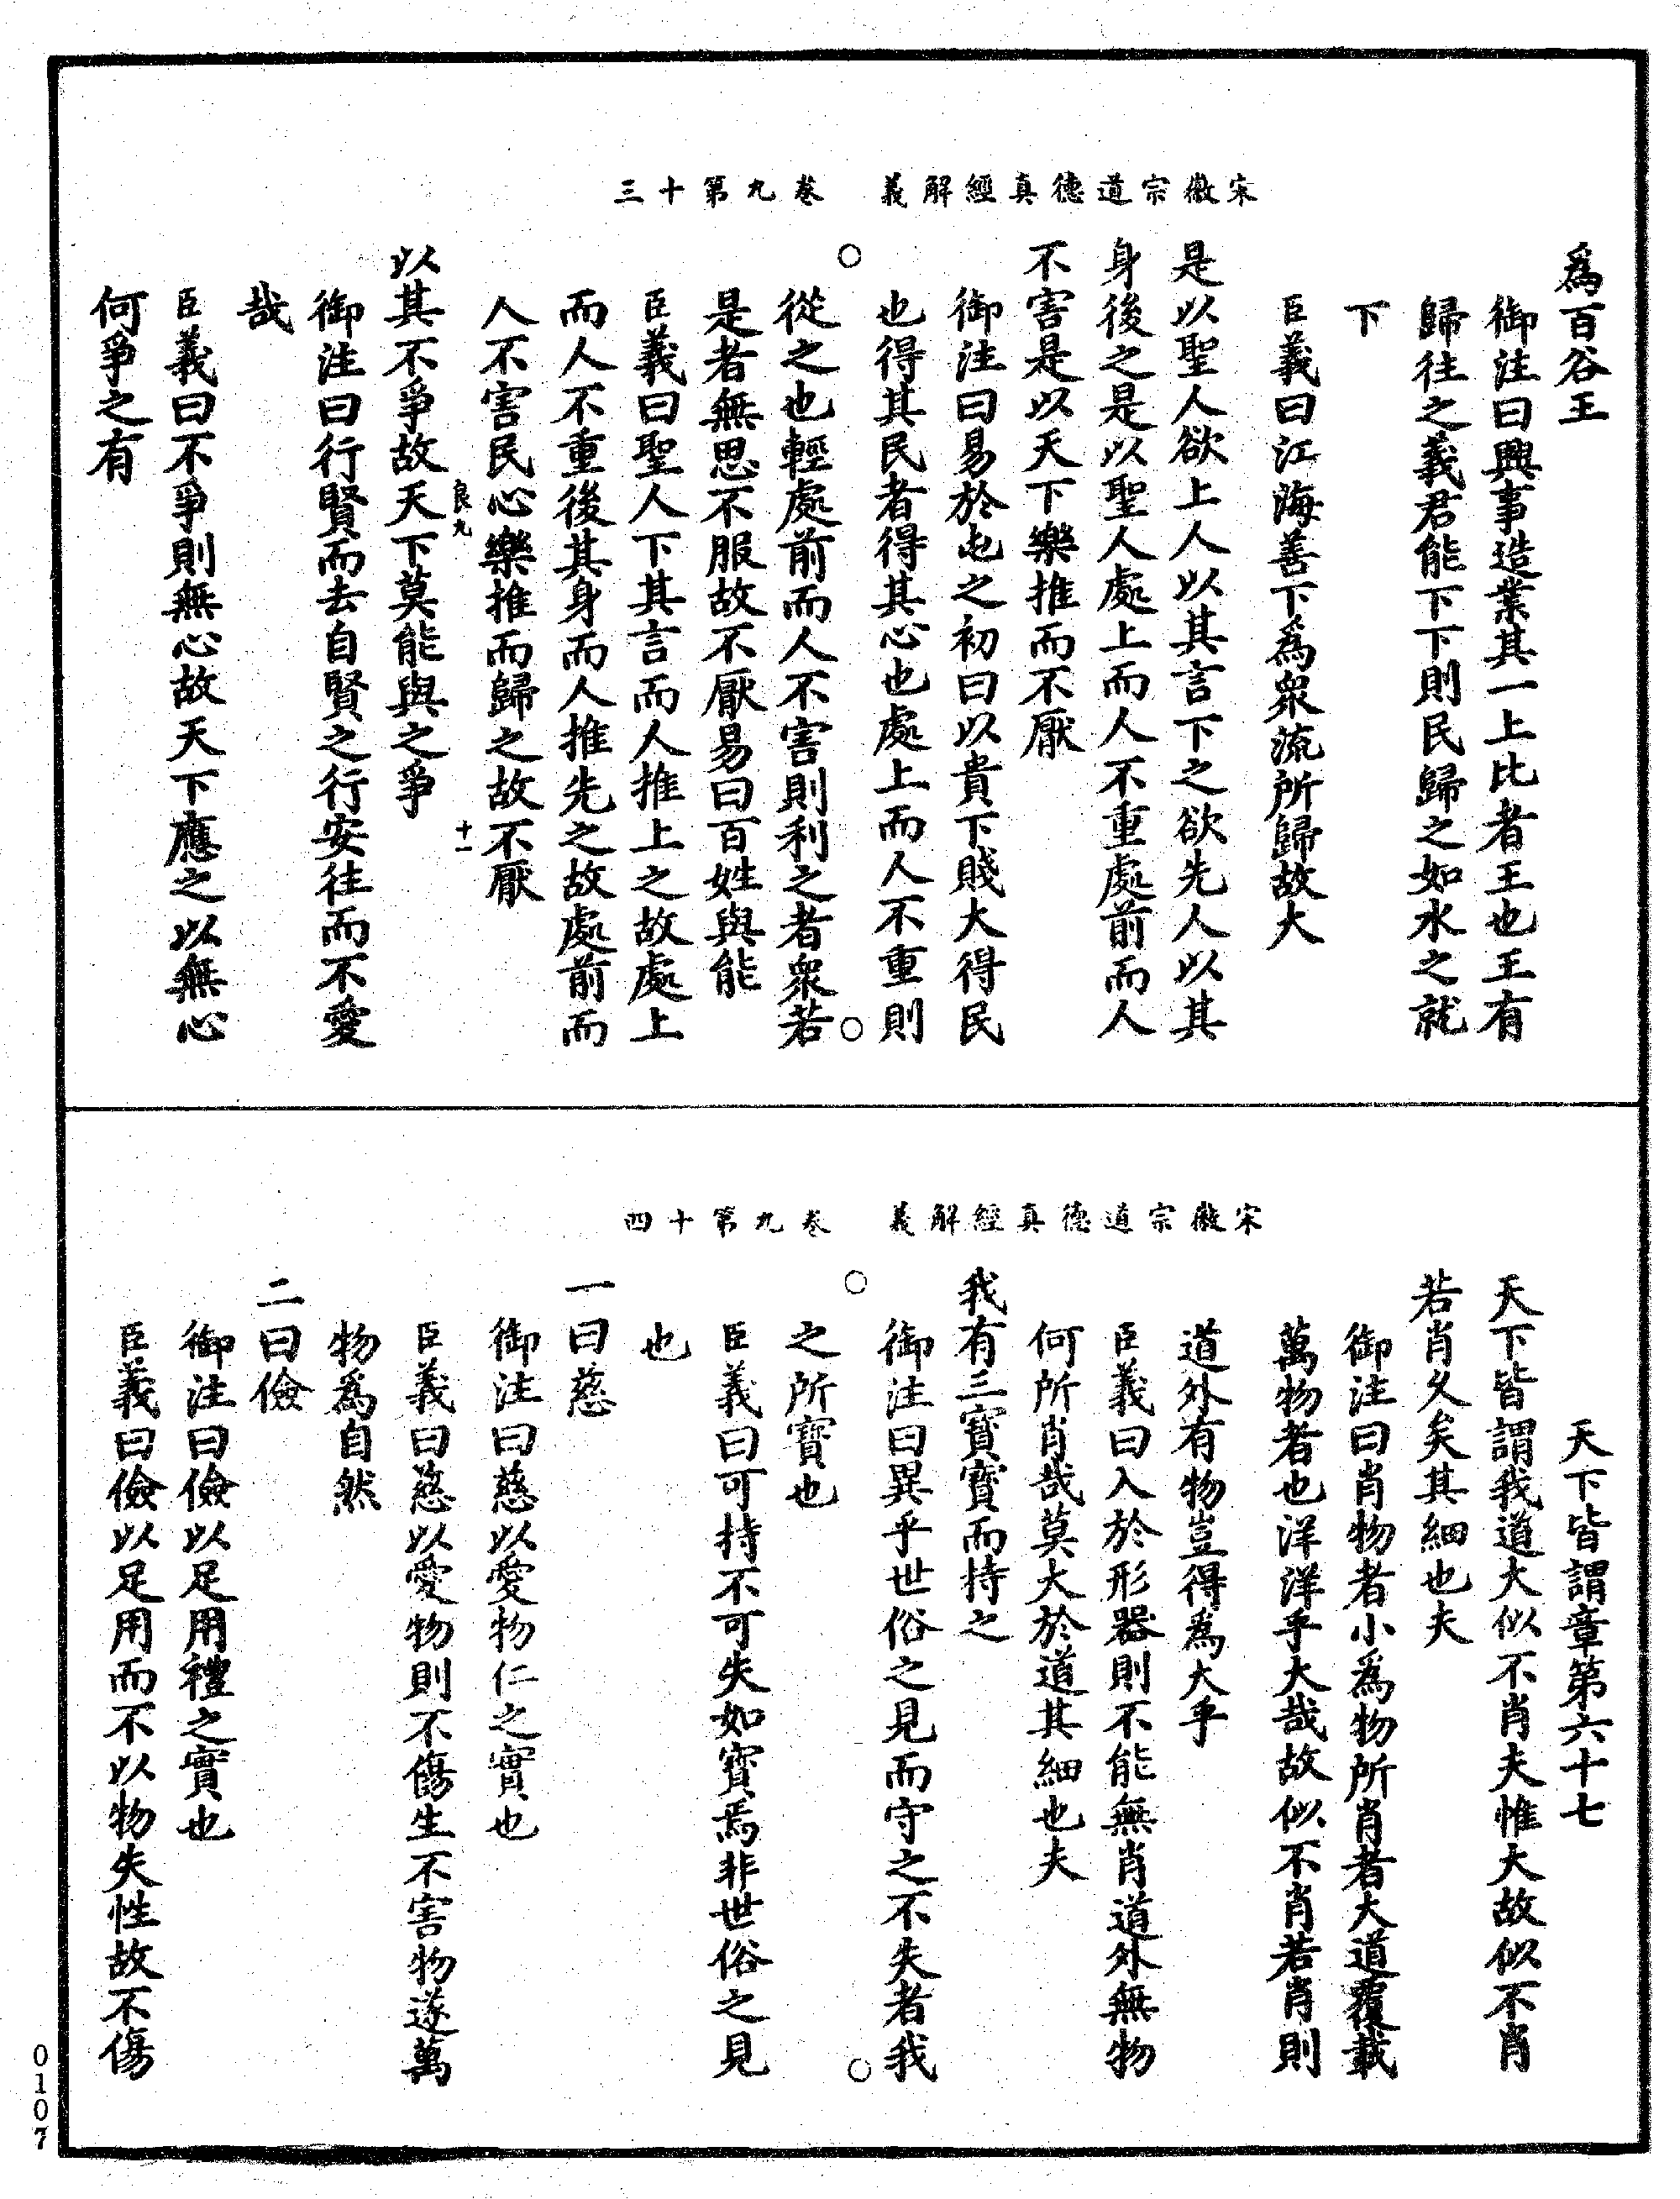 宋徽宗道德真經解義　卷九第十三
爲百谷王
御注曰興事造業其一上比者王也王有
歸往之義君能下下則民歸之如水之就
下
臣義曰江海善下爲衆流所歸故大
是以聖人欲上人以其言下之欲先人以其
身後之是以聖人處上而人不重處前而人
不害是以天下樂推而不厭
御注曰易於屯之初曰以貴下賤大得民
也得其民者得其心也處上而人不重則
從之也輕處前而人不害則利之者衆若
是者無思不服故不厭易曰百姓與能
臣義曰聖人下其言而人推上之故處上
而人不重後其身而人推先之故處前而
人不害民心樂推而歸之故不厭
良九　十一
以其不爭故天下莫能與之爭
御注曰行賢而去自賢之行安往而不愛
哉
臣義曰不爭則無心故天下應之以無心
何爭之有
宋徽宗道德真經解義　卷九第十四
天下皆謂章第六十七
天下皆謂我道大似不肖夫惟大故似不肖
若肖久矣其細也夫
御注曰肖物者小爲物所肖者大道覆載
萬物者也洋洋乎大哉故似不肖若肖則
道外有物豈得爲大乎
臣義曰入於形器則不能無肖道外無物
何所肖哉莫大於道其細也夫
我有三寶寶而持之
御注曰異乎世俗之見而守之不失者我
之所寶也
臣義曰可持不可失如寶焉非世俗之見
也
一曰慈
御注曰慈以愛物仁之實也
臣義曰慈以愛物則不傷生不害物遂萬
物爲自然
二曰儉
御注曰儉以足用禮之實也
臣義曰儉以足用而不以物失性故不傷
0107